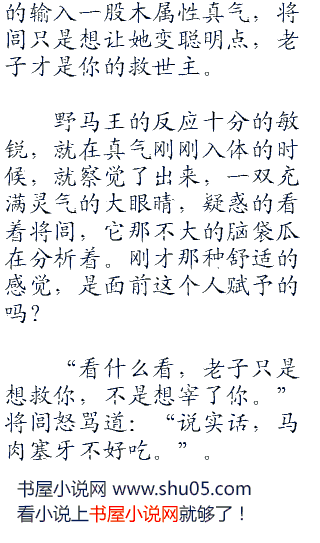 的输入一股木属性真气，将
闾只是想让她变聪明点，老
子才是你的救世主。
野马王的反应十分的敏
锐，就在真气刚刚入体的时
候，就察觉了出来，一双充
满灵气的大眼睛，疑惑的看
着将闾，它那不大的脑袋瓜
在分析着。刚才那种舒适的
感觉，是面前这个人赋予的
吗？
“看什么看，老子只是
想救你，不是想宰了你。”
将闾怒骂道：“说实话，马
肉塞牙不好吃。”。
书屋小说网 www.shu05.com
看小说上书屋小说网就够了！